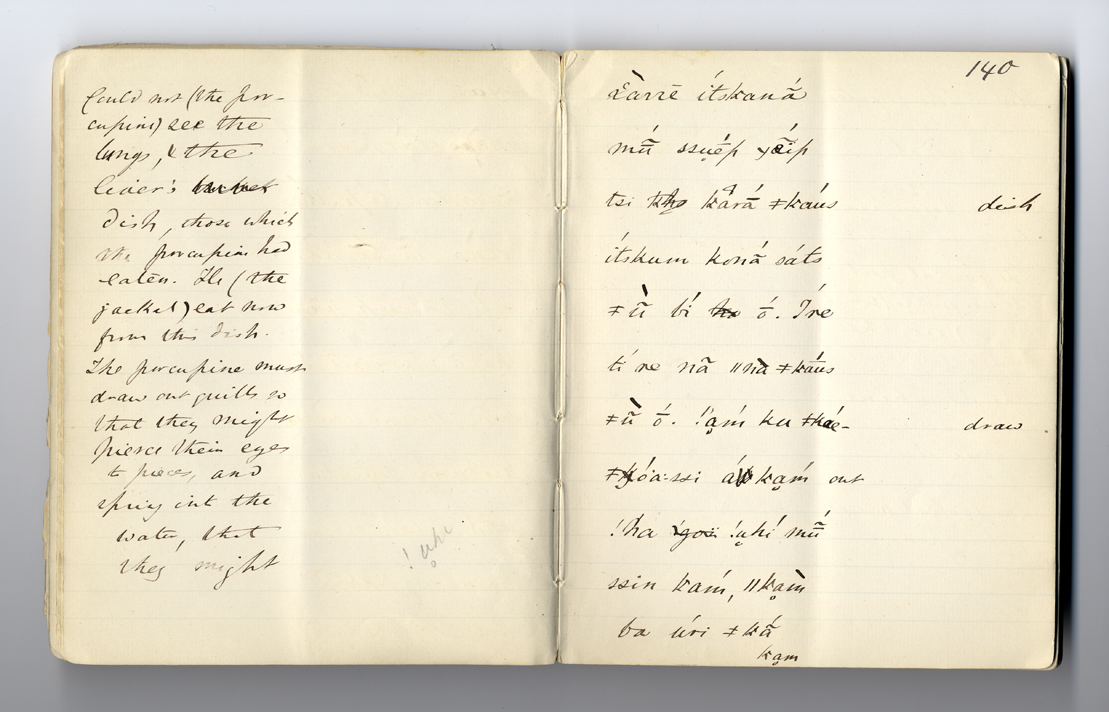 Could not (the por-
cupine) see the
lungs, & the
liver's
dish, those which
the porcupine had
eaten. He (the
jackal) eat now
from this dish.
The porcupine must
draw out quills so
that they might
pierce their eyes
to pieces, and
spring into the
water, that
they might
! u̥hi
140
ítskaná
mṹ
tsi kãrá ǂkáus dish
ítskum koná sáts
ǂũ̀ bí ó. Íre
tí re nã ǁnà ǂkã́us
ǂũ̀ ó. !ạḿ ku draw
kạḿ out
!ha !ụhí mṹ
ssin kaḿ, ǁkạm̀
ba úri ǂkã́
kạm